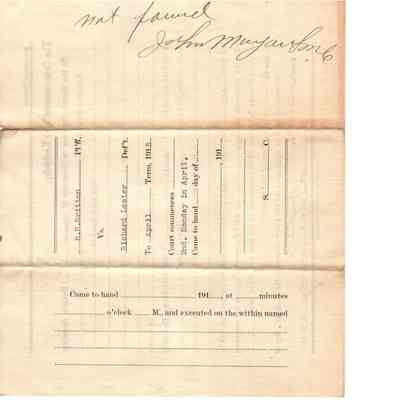 not found
John Munyan Smc
R.H.Britton Pl'ff.
Vs.
Richard Lester Def't.
To April Term, 1913.
Court commences
2nd. Monday in April.
Came to hand day of
, 191
S. C.
Came to hand 191 , at minutes
o'clock M., and executed on the within named